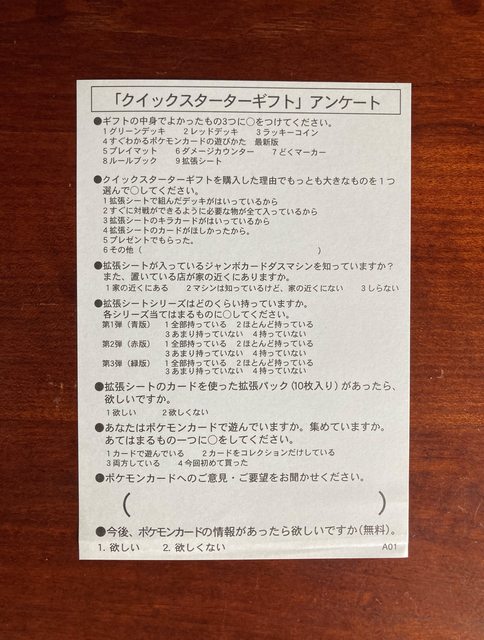 「クイックスターターギフト」アンケート
●ギフトの中身でよかったもの3つに○をつけてください。
1グリーンデッキ　2レッドデッキ　3ラッキーコイン
4すぐわかるポケモンカードの遊びかた　最新版
5プレイマット　6ダメージカウンター　7どくマーカー
8ルールブック　9拡張シート
●クイックスターターギフトを購入した理由でもっとも大きなものを1つ
選んで○してください。
1拡張シートで組んだデッキがはいっているから
2すぐに対戦ができるように必要な物が全て入っているから
3拡張シートのキラカードがはいっているから
4拡張シートのカードがほしかったから。
5プレゼントでもらった。
6その他（　　　　　　　　　　）
●拡張シートが入っているジャンボカードダスマシンを知っていますか?
また、置いている店が家の近くにありますか。
1家の近くにある　2マシンは知っているけど、家の近くにない　3しらない
●拡張シートシリーズはどのくらい持っていますか。
各シリーズ当てはまるものに○してください。
第1弾（青版）　1全部持っている　2ほとんど持っている
3あまり持っていない　4持っていない
第2弾（赤版）　1全部持っている　2ほとんど持っている
3あまり持っていない　4持っていない
第3弾（緑版）　1全部持っている　2ほとんど持っている
3あまり持っていない　4持っていない
●拡張シートのカードを使った拡張パック（10枚入り）があったら、
欲しいですか。
1欲しい　2欲しくない
●あなたはポケモンカードで遊んでいますか。集めていますか。
あてはまるもの一つに○をしてください。
1カードで遊んでいる　2カードをコレクションだけしている
3両方している　4今回初めて買った
●ポケモンカードへのご意見・ご要望をお聞かせください。
（　　　　　　　　　　）
●今後、ポケモンカードの情報があったら欲しいですか（無料）。
1. 欲しい　2. 欲しくない
A01